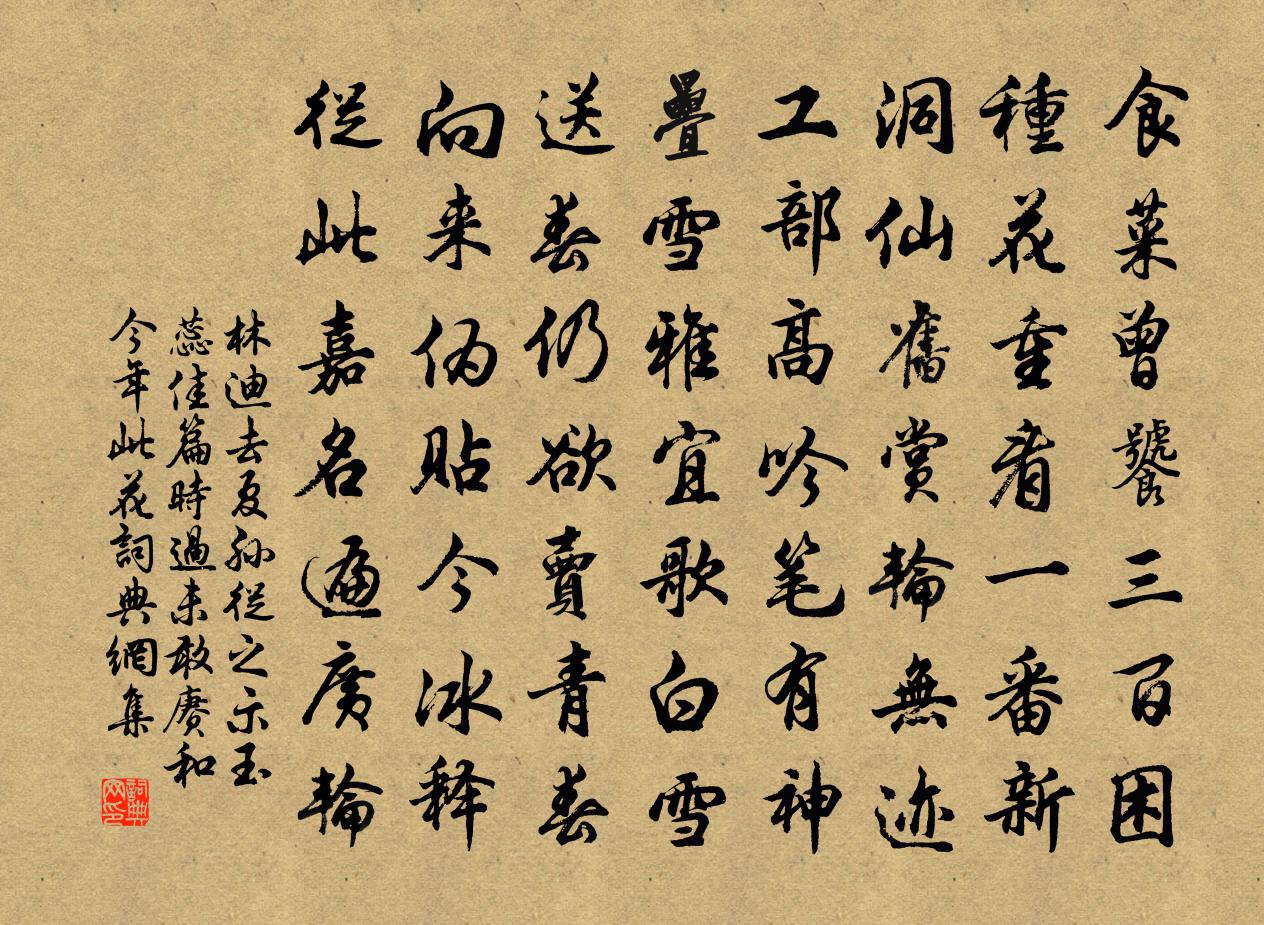 食菜曾饕三百困
種花重看一番新
洞仙舊賞輪無迹
工部高吟笔有神
疊雪雅宜歌白雪
送春仍欲賣青春
向来伪貼今冰释
從此嘉名遍廣輪
林迪去夏孙從之示玉
蕊佳篇時過未敢赓和
今年此花詞典網集
詞典网印